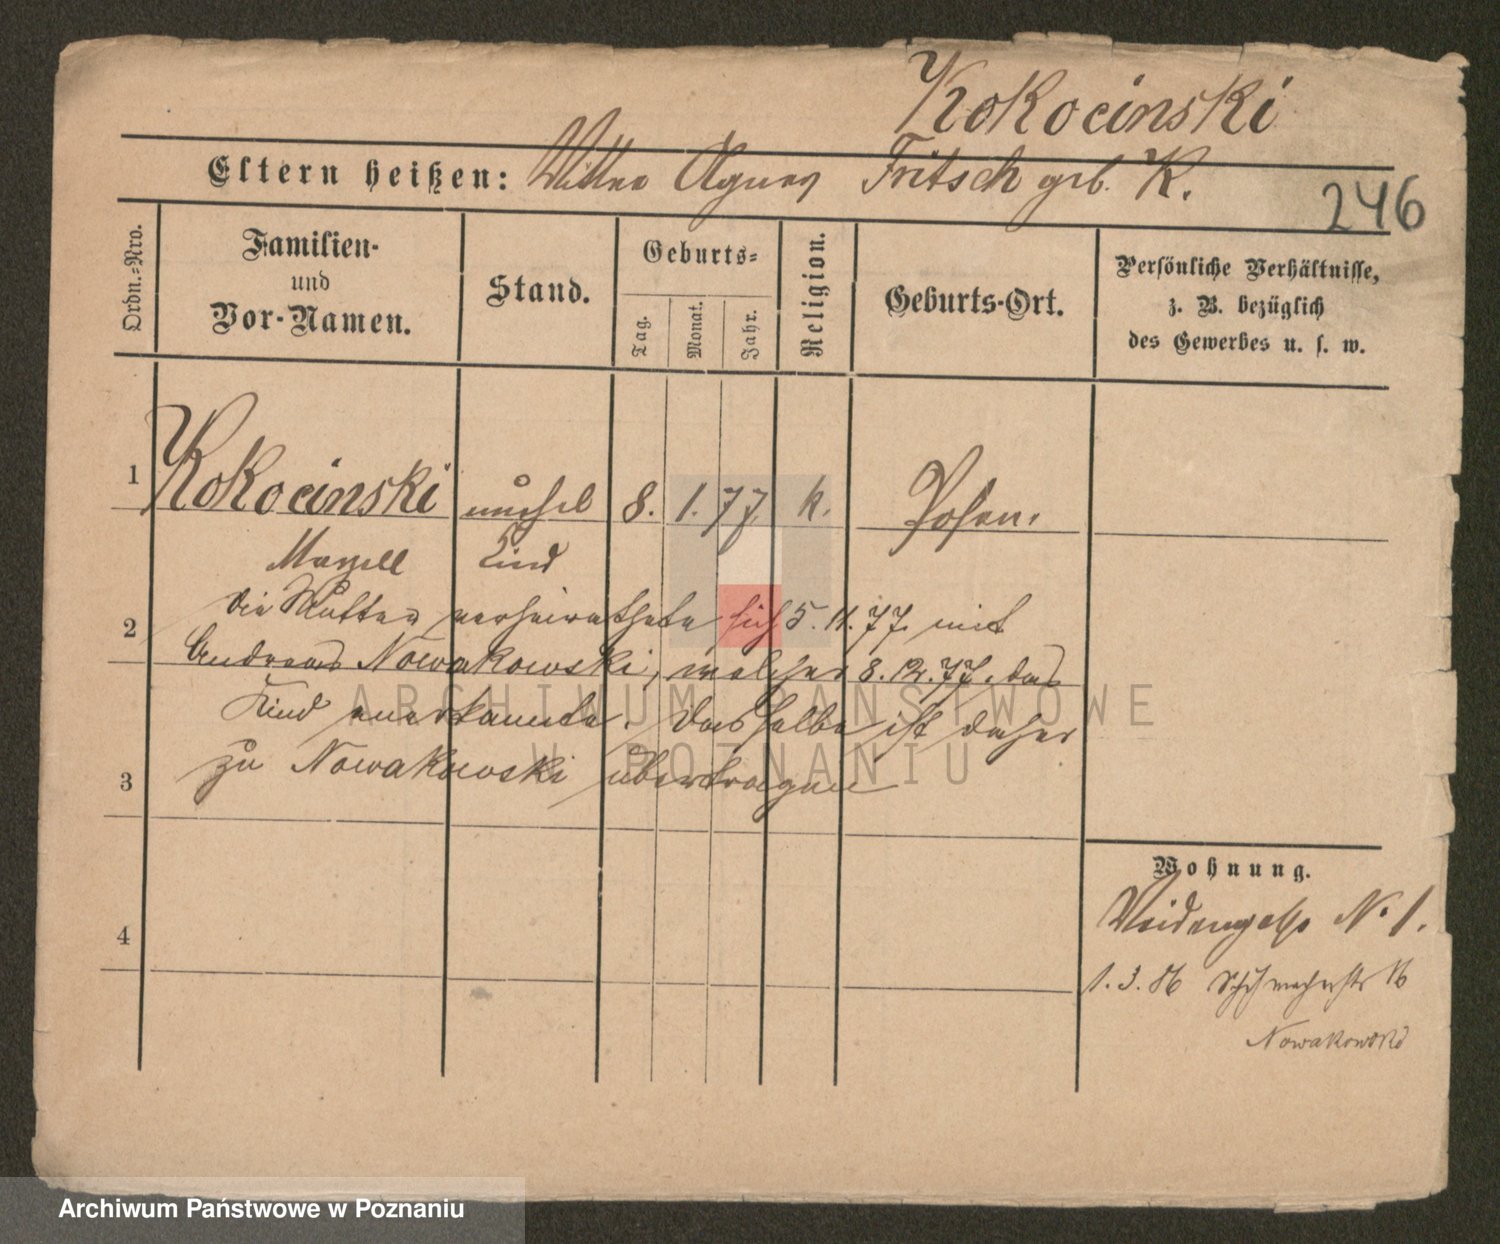 Kokocinski
Eltern heißen: Wittwe Agnes Fritsch geb. K.
246
Ordn.-Nro.
Familien-
und
Vor-Namen.
Stand.
Geburts-
Tag.
Monat.
Jahr.
Religion.
Geburts-Ort.
Persönliche Verhältnisse,
z. B. bezüglich
des Gewerbes u. s. w.
1 Kokocinski unehel 8. 1. 77. k. Posen.
Marzell Kind
2 Die Mutter verheirathete sich 5. 11. 77. mit
Andreas Nowakowski, welcher 8. 12. 77. das
Kind anerkannte. Dasselbe ist daher
3 zu Nowakowski übertragen
4
Wohnung.
Weidengasse No 1.
1. 3. 86 Schuhmacherstr 16
Nowakowski
ARCHIWUM PAŃSTWOWE
W POZNANIU
Archiwum Państwowe w Poznaniu